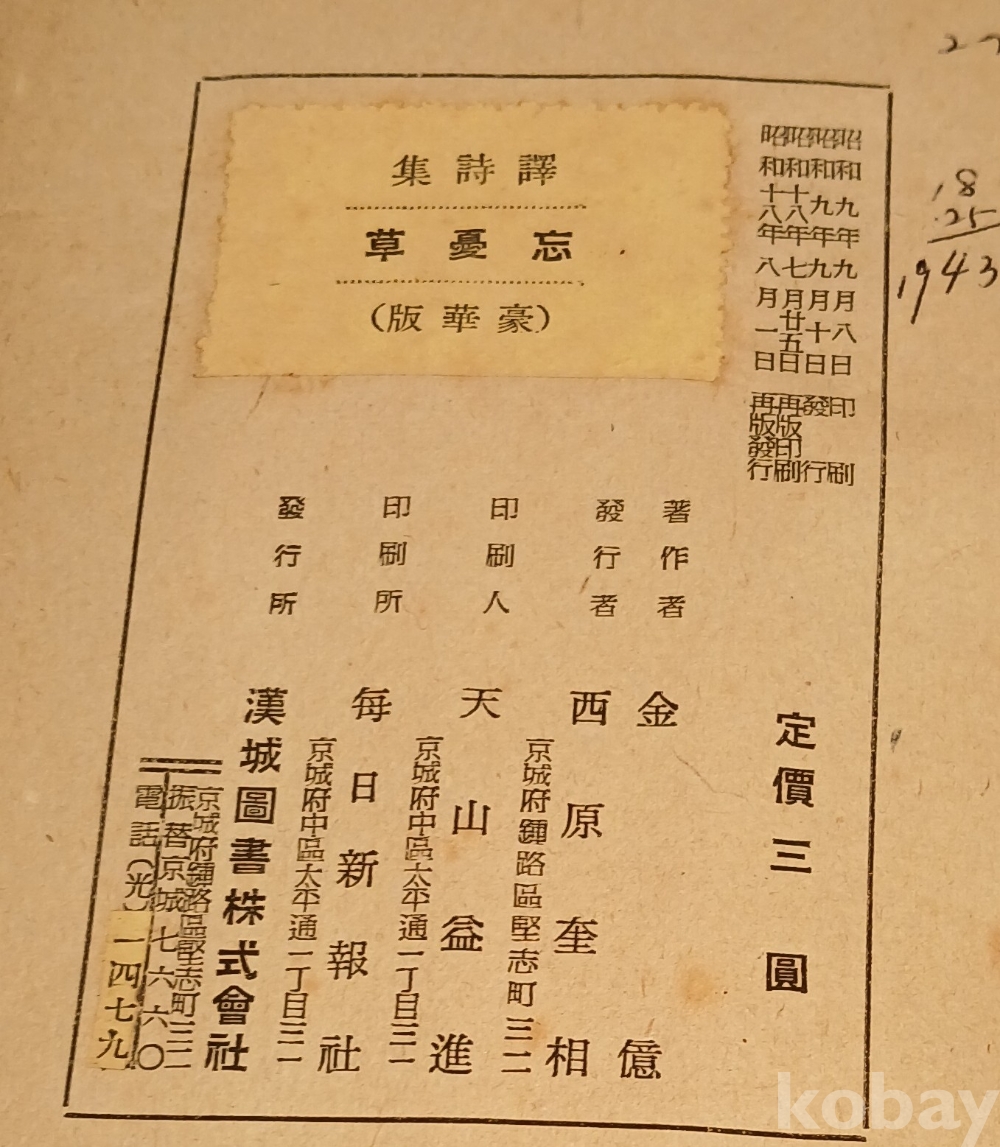 昭和九年九月八日印刷
昭和九年九月十日發行
昭和十八年七月廿五日再版印刷
昭和十八年八月一日再版發行
譯詩集
忘憂草
（豪華版）
定價三圓
著作者 金億
發行者 西原奎相
京城府鍾路區堅志町三二
印刷人 天山益進
京城府中區太平通一丁目三一
印刷所 每日新報社
京城府中區太平通一丁目三一
發行所 漢城圖書株式會社
京城府鍾路區堅志町三二
振替京城七六六〇
電話(光)一四七九
18
25
1943
kobay